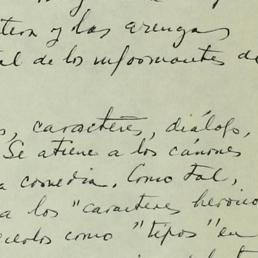 y las arengas
al de los informantes de
s, caracteres, diálogo,
Se atiene a los cánones
a comedia. Como tal,
a los "caracteres heroico
como "tipos" en